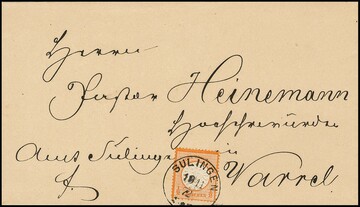 Herrn
Pastor Heinemann
Hochehrwürden
Amt Sulingen
in
Varrel
fr.
SULINGEN